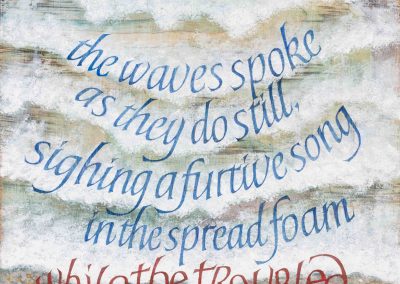 the waves spoke
as they do still,
sighing a furtive song
in the spread foam
while the troubled